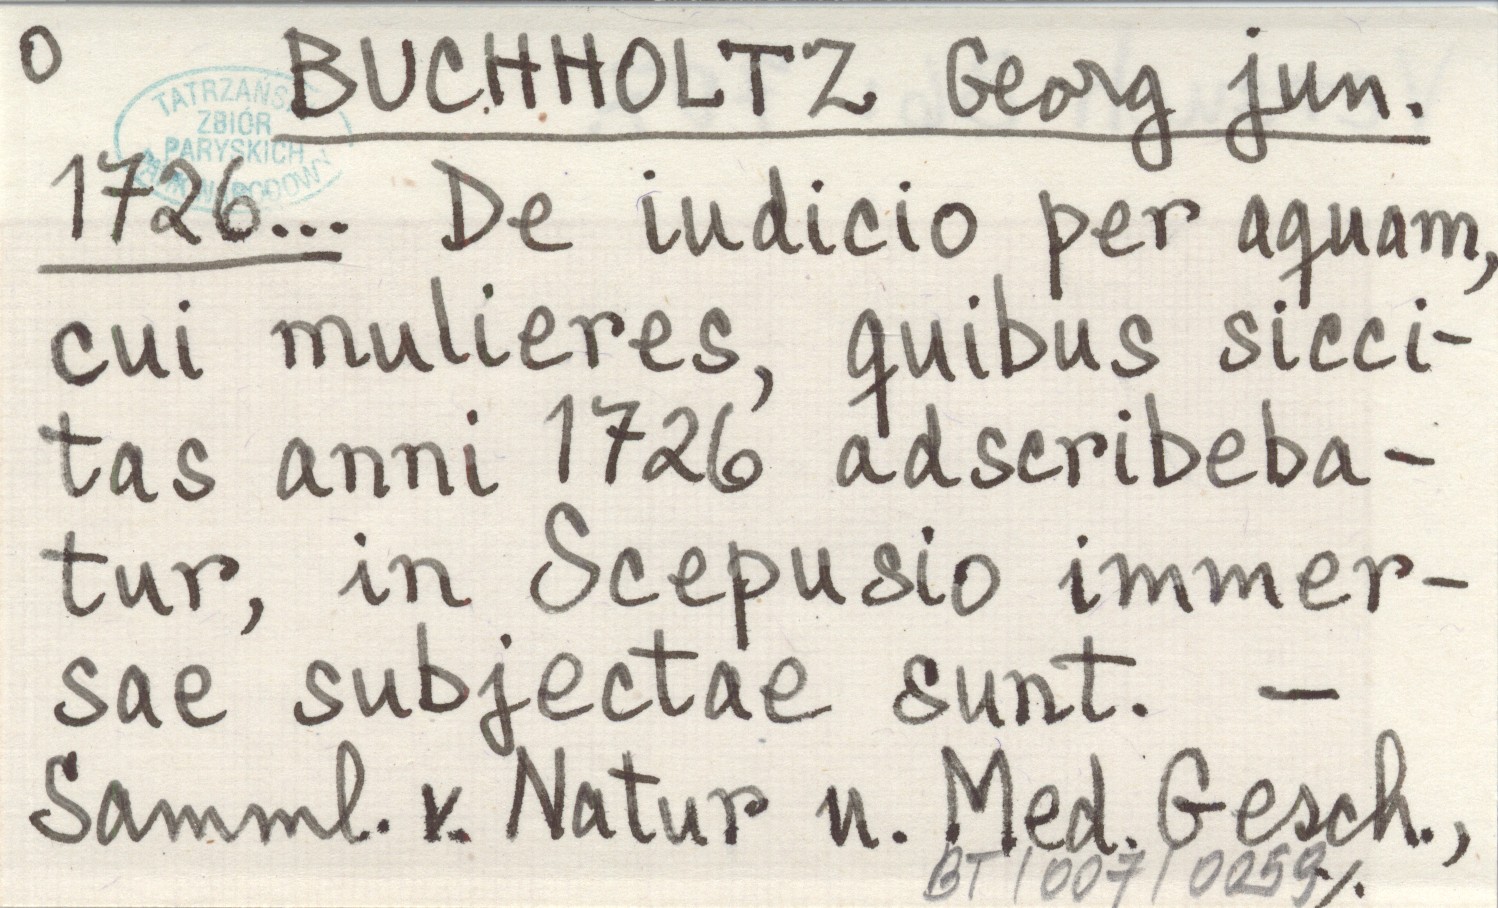 O BUCHHOLTZ Georg jun.
TATRZAŃSKI
ZBIÓR
PARYSKICH
1726... De iudicio per aquam,
cui mulieres, quibus sicci-
tas anni 1726 adscribeba-
tur, in Scepusio immer-
sae subjectae sunt. —
Samml. v. Natur u. Med. Gesch.,
BT/007/0259 ./.